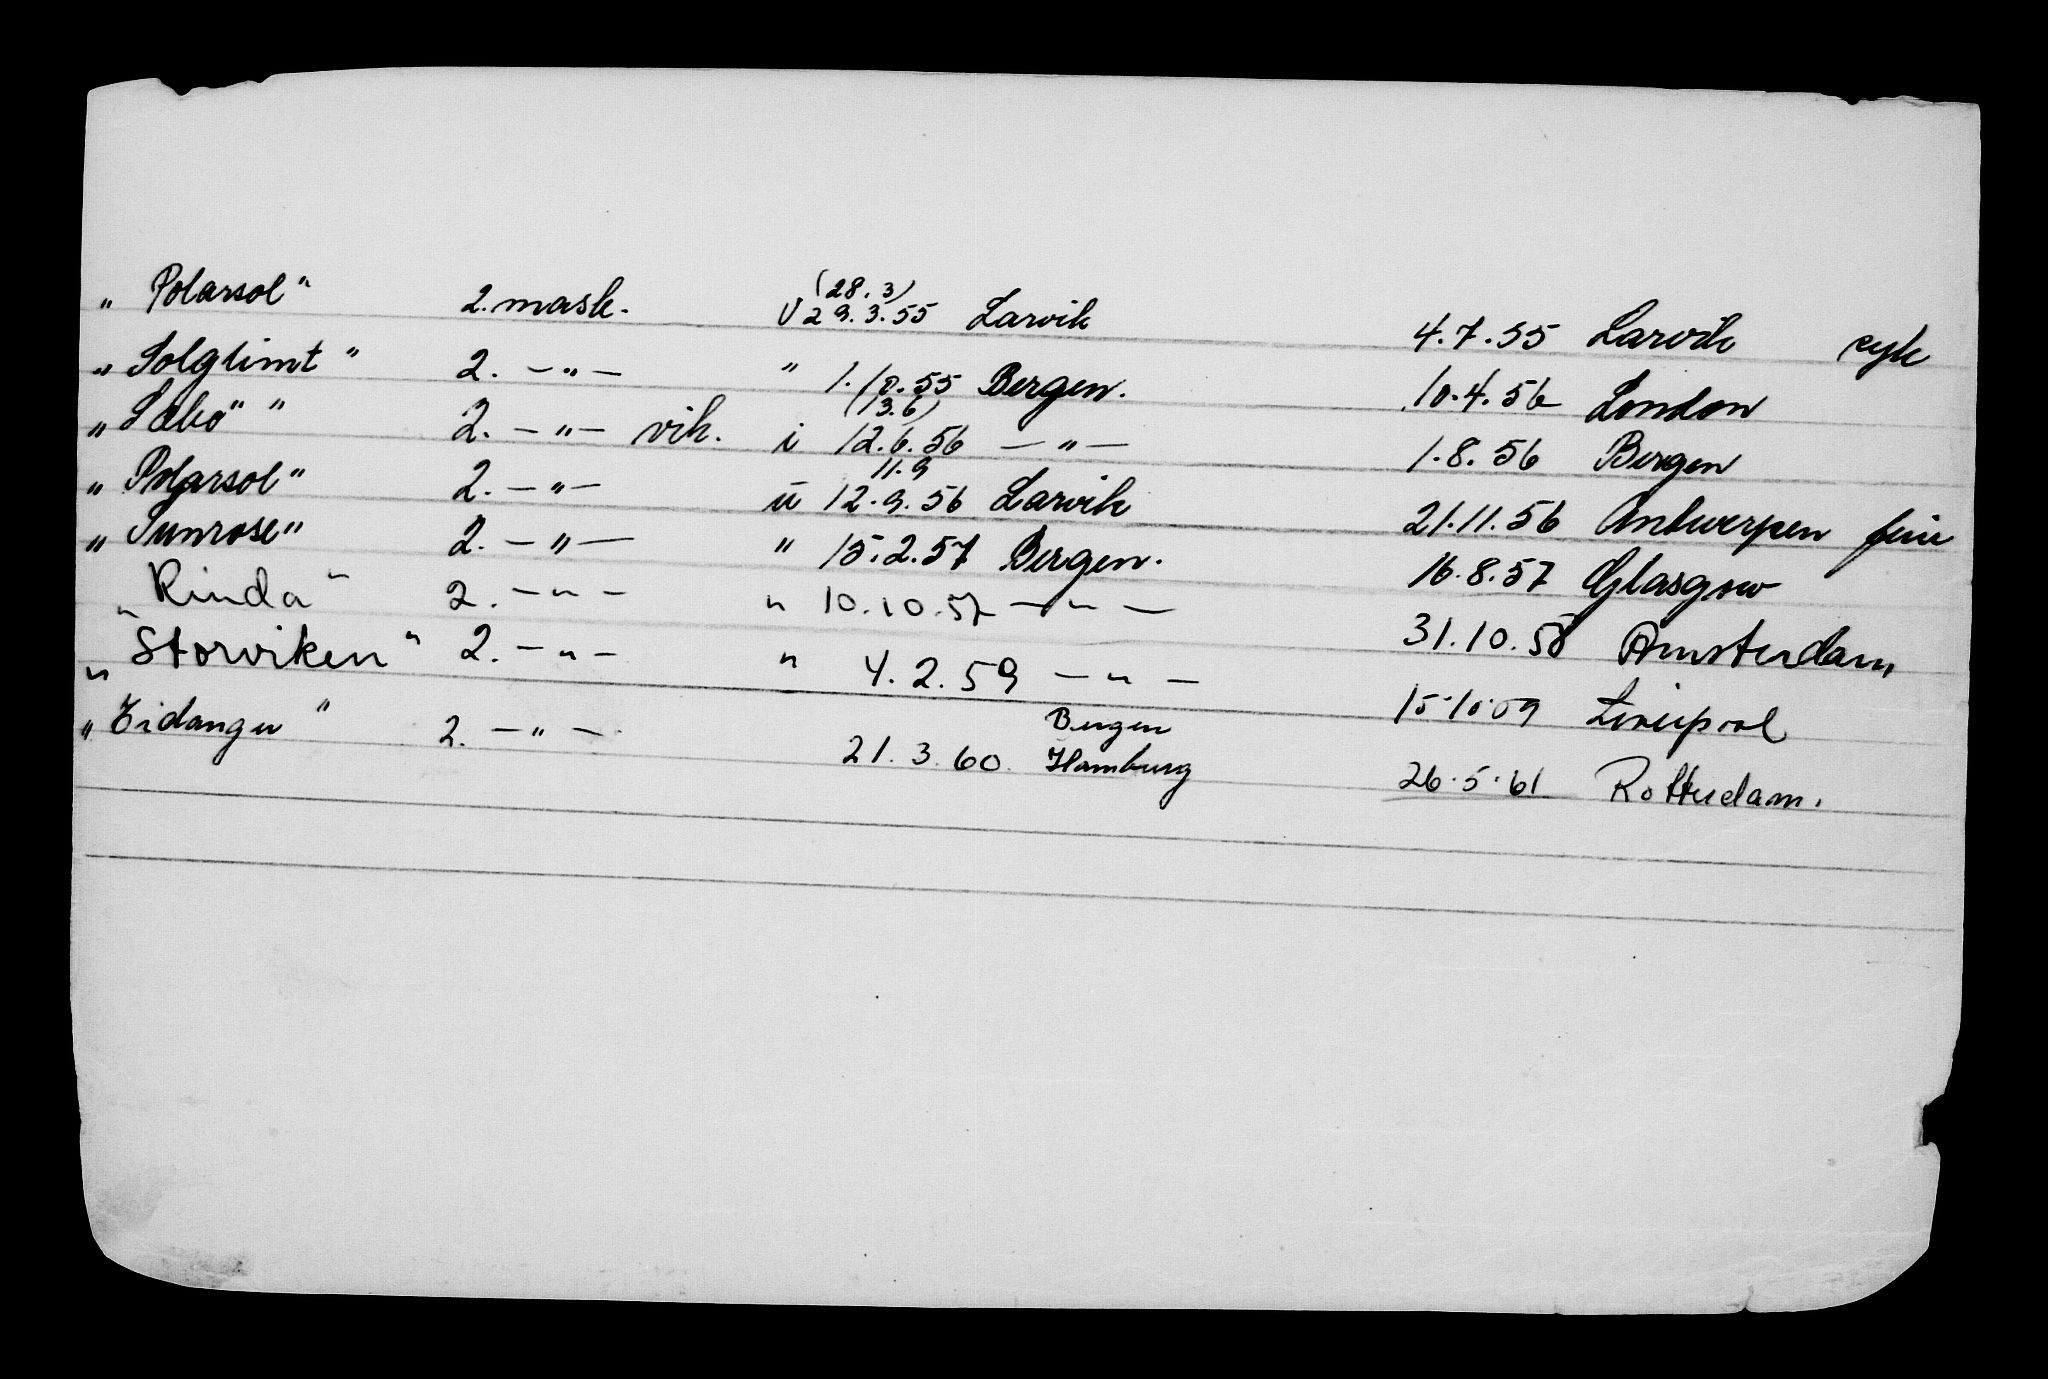 „Polarsol" 2. mask. (28.3) U 29.3.55 Larvik 4.7.55 Larvik syk
„Solglimt" 2. —„— " 1.10.55 Bergen. 10.4.56 London
„Sæbø" " 2. —„— vik. i (13.6) 12.6.56 —„— 1.8.56 Bergen
„Polarsol" 2. —„— u 11.9 12.9.56 Larvik 21.11.56 Antwerpen ferie
„Sunrose" 2. —„— " 15.2.57 Bergen. 16.8.57 Glasgow
„Rinda" 2. —„— " 10.10.57 —„— 31.10.58 Amsterdam
„Storviken" 2. —„— " 4.2.59 —„— 15.10.59 Liverpool
„Eidanger" 2. —„— Bergen
21.3.60. Hamburg 26.5.61 Rotterdam.